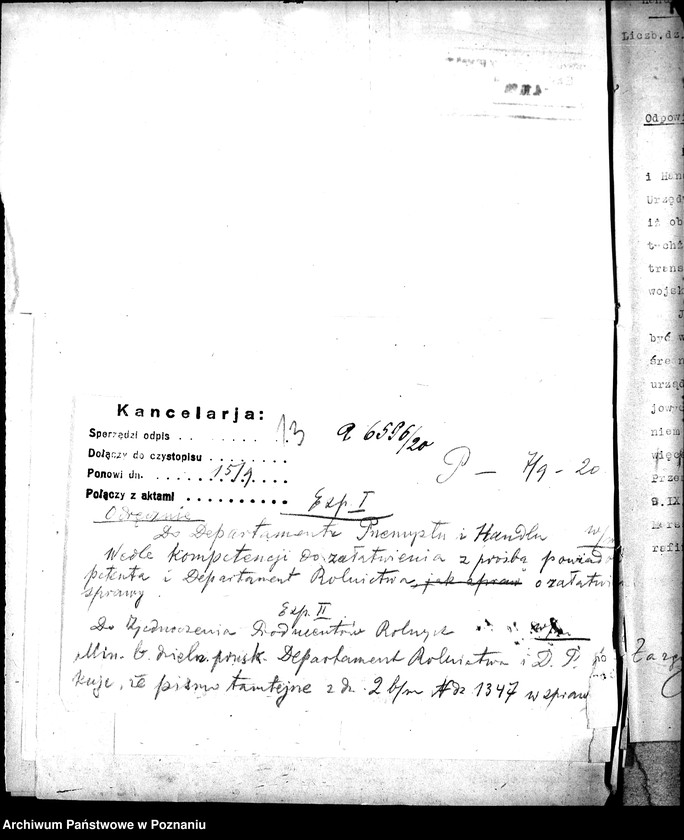 Liczb.dz.
Odpowi
i Han
Urzędy
wojsk
być w
urząd
niem
więc
9.IX.
Kancelarja:
Sporządzi odpis . . . . . . . . 13
Dołączy do czystopisu . . . . . . .
Ponowi dn. . 15/9 . . . .
Połączy z aktami . . . . . . . . . .
a 6596/20
P — 7/9 - 20
Odręcznie
Exp. I
Do Departamentu Przemysłu i Handlu w/m
Wedle kompetencji do załatwienia z prośbą powiado
petenta i Departament Rolnictwa jak spraw o załatwie
sprawy.
Exp. II
Do Zjednoczenia Producentów Rolnych
Min. b. dzieln. prusk. Departament Rolnictwa i D. P.
kuje, że pismo tamtejsze z dn. 2 b/m № dz 1347 w spraw
Archiwum Państwowe w Poznaniu